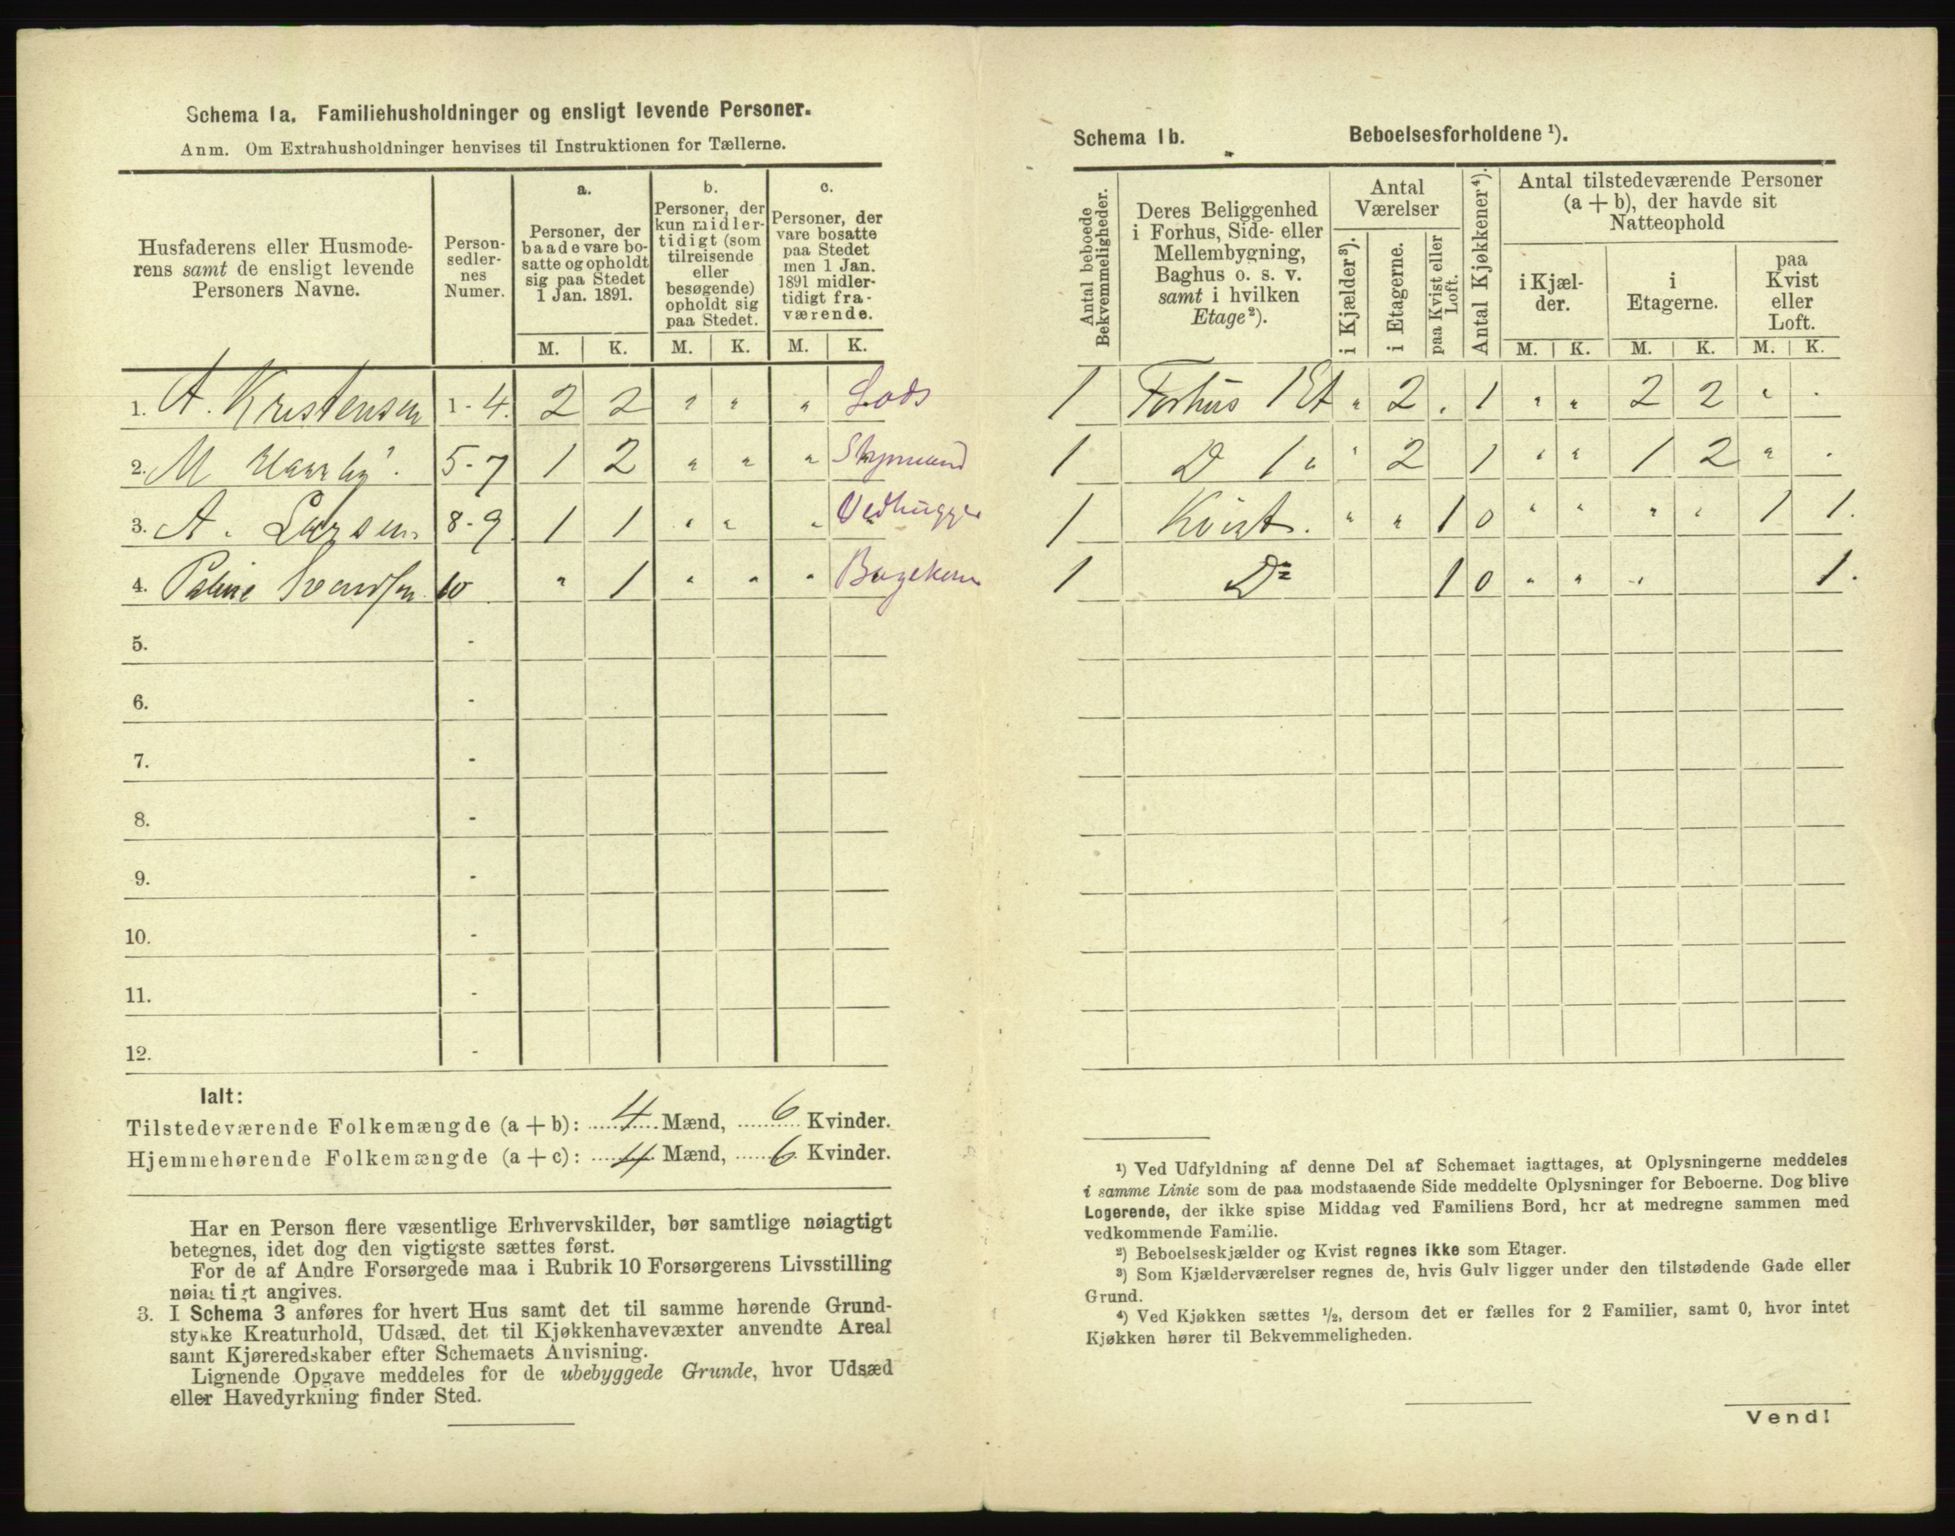 Schema 1a. Familiehusholdninger og ensligt levende Personer.
Anm. Om Extrahusholdninger henvises til Instruktionen for Tællerne.
Husfaderens eller Husmode-
rens samt de ensligt levende
Personers Navne.
Person-
sedler-
nes
Numer.
a.
Personer, der
baade vare bo-
satte og opholdt
sig paa Stedet
1 Jan. 1891.
b.
Personer, der
kun midler-
tidigt (som
tilreisende
eller
besøgende)
opholdt sig
paa Stedet.
c.
Personer, der
vare bosatte
paa Stedet
men 1 Jan.
1891 midler-
tidigt fra-
værende.
M. K. M. K. M. K.
1. A. Kristensen 1-4. 2 2 " " " Lods
2. M 5-7 1 2 " " "
3. A. Larsen 8-9 1 1 " " " Vedhugger
4. Svendsen 10 " 1 " " "
5. -
6. -
7. -
8. -
9. -
10. -
11. -
12. -
Ialt:
Tilstedeværende Folkemængde (a + b): 4 Mænd, 6 Kvinder.
Hjemmehørende Folkemængde (a + c): 4 Mænd, 6 Kvinder.
Har en Person flere væsentlige Erhvervskilder, bør samtlige nøiagtigt
betegnes, idet dog den vigtigste sættes først.
For de af Andre Forsørgede maa i Rubrik 10 Forsørgerens Livsstilling
nøiagtigt angives.
3. I Schema 3 anføres for hvert Hus samt det til samme hørende Grund-
stykke Kreaturhold, Udsæd, det til Kjøkkenhavevæxter anvendte Areal
samt Kjøreredskaber efter Schemaets Anvisning.
Lignende Opgave meddeles for de ubebyggede Grunde, hvor Udsæd
eller Havedyrkning finder Sted.
Schema 1b. Beboelsesforholdene ¹).
Antal beboede
Bekvemmeligheder.
Deres Beliggenhed
i Forhus, Side- eller
Mellembygning,
Baghus o. s. v.
samt i hvilken
Etage²).
Antal
Værelser
i Kjælder³).
i Etagerne.
paa Kvist eller
Loft.
Antal Kjøkkener⁴).
Antal tilstedeværende Personer
(a + b), der havde sit
Natteophold
i Kjæl-
der.
i
Etagerne.
paa
Kvist
eller
Loft.
M. K. M. K. M. K.
1 Forhus 1 Et " 2 . 1 " " 2 2 " .
1 D 1 " " 2 1 " " 1 2 " .
1 Kvist. " " 1 0 " " " " 1 1.
1 Do 1 0 " " " 1.
¹) Ved Udfyldning af denne Del af Schemaet iagttages, at Oplysningerne meddeles
i samme Linie som de paa modstaaende Side meddelte Oplysninger for Beboerne. Dog blive
Logerende, der ikke spise Middag ved Familiens Bord, her at medregne sammen med
vedkommende Familie.
²) Beboelseskjælder og Kvist regnes ikke som Etager.
³) Som Kjælderværelser regnes de, hvis Gulv ligger under den tilstødende Gade eller
Grund.
⁴) Ved Kjøkken sættes ½, dersom det er fælles for 2 Familier, samt 0, hvor intet
Kjøkken hører til Bekvemmeligheden.
Vend!